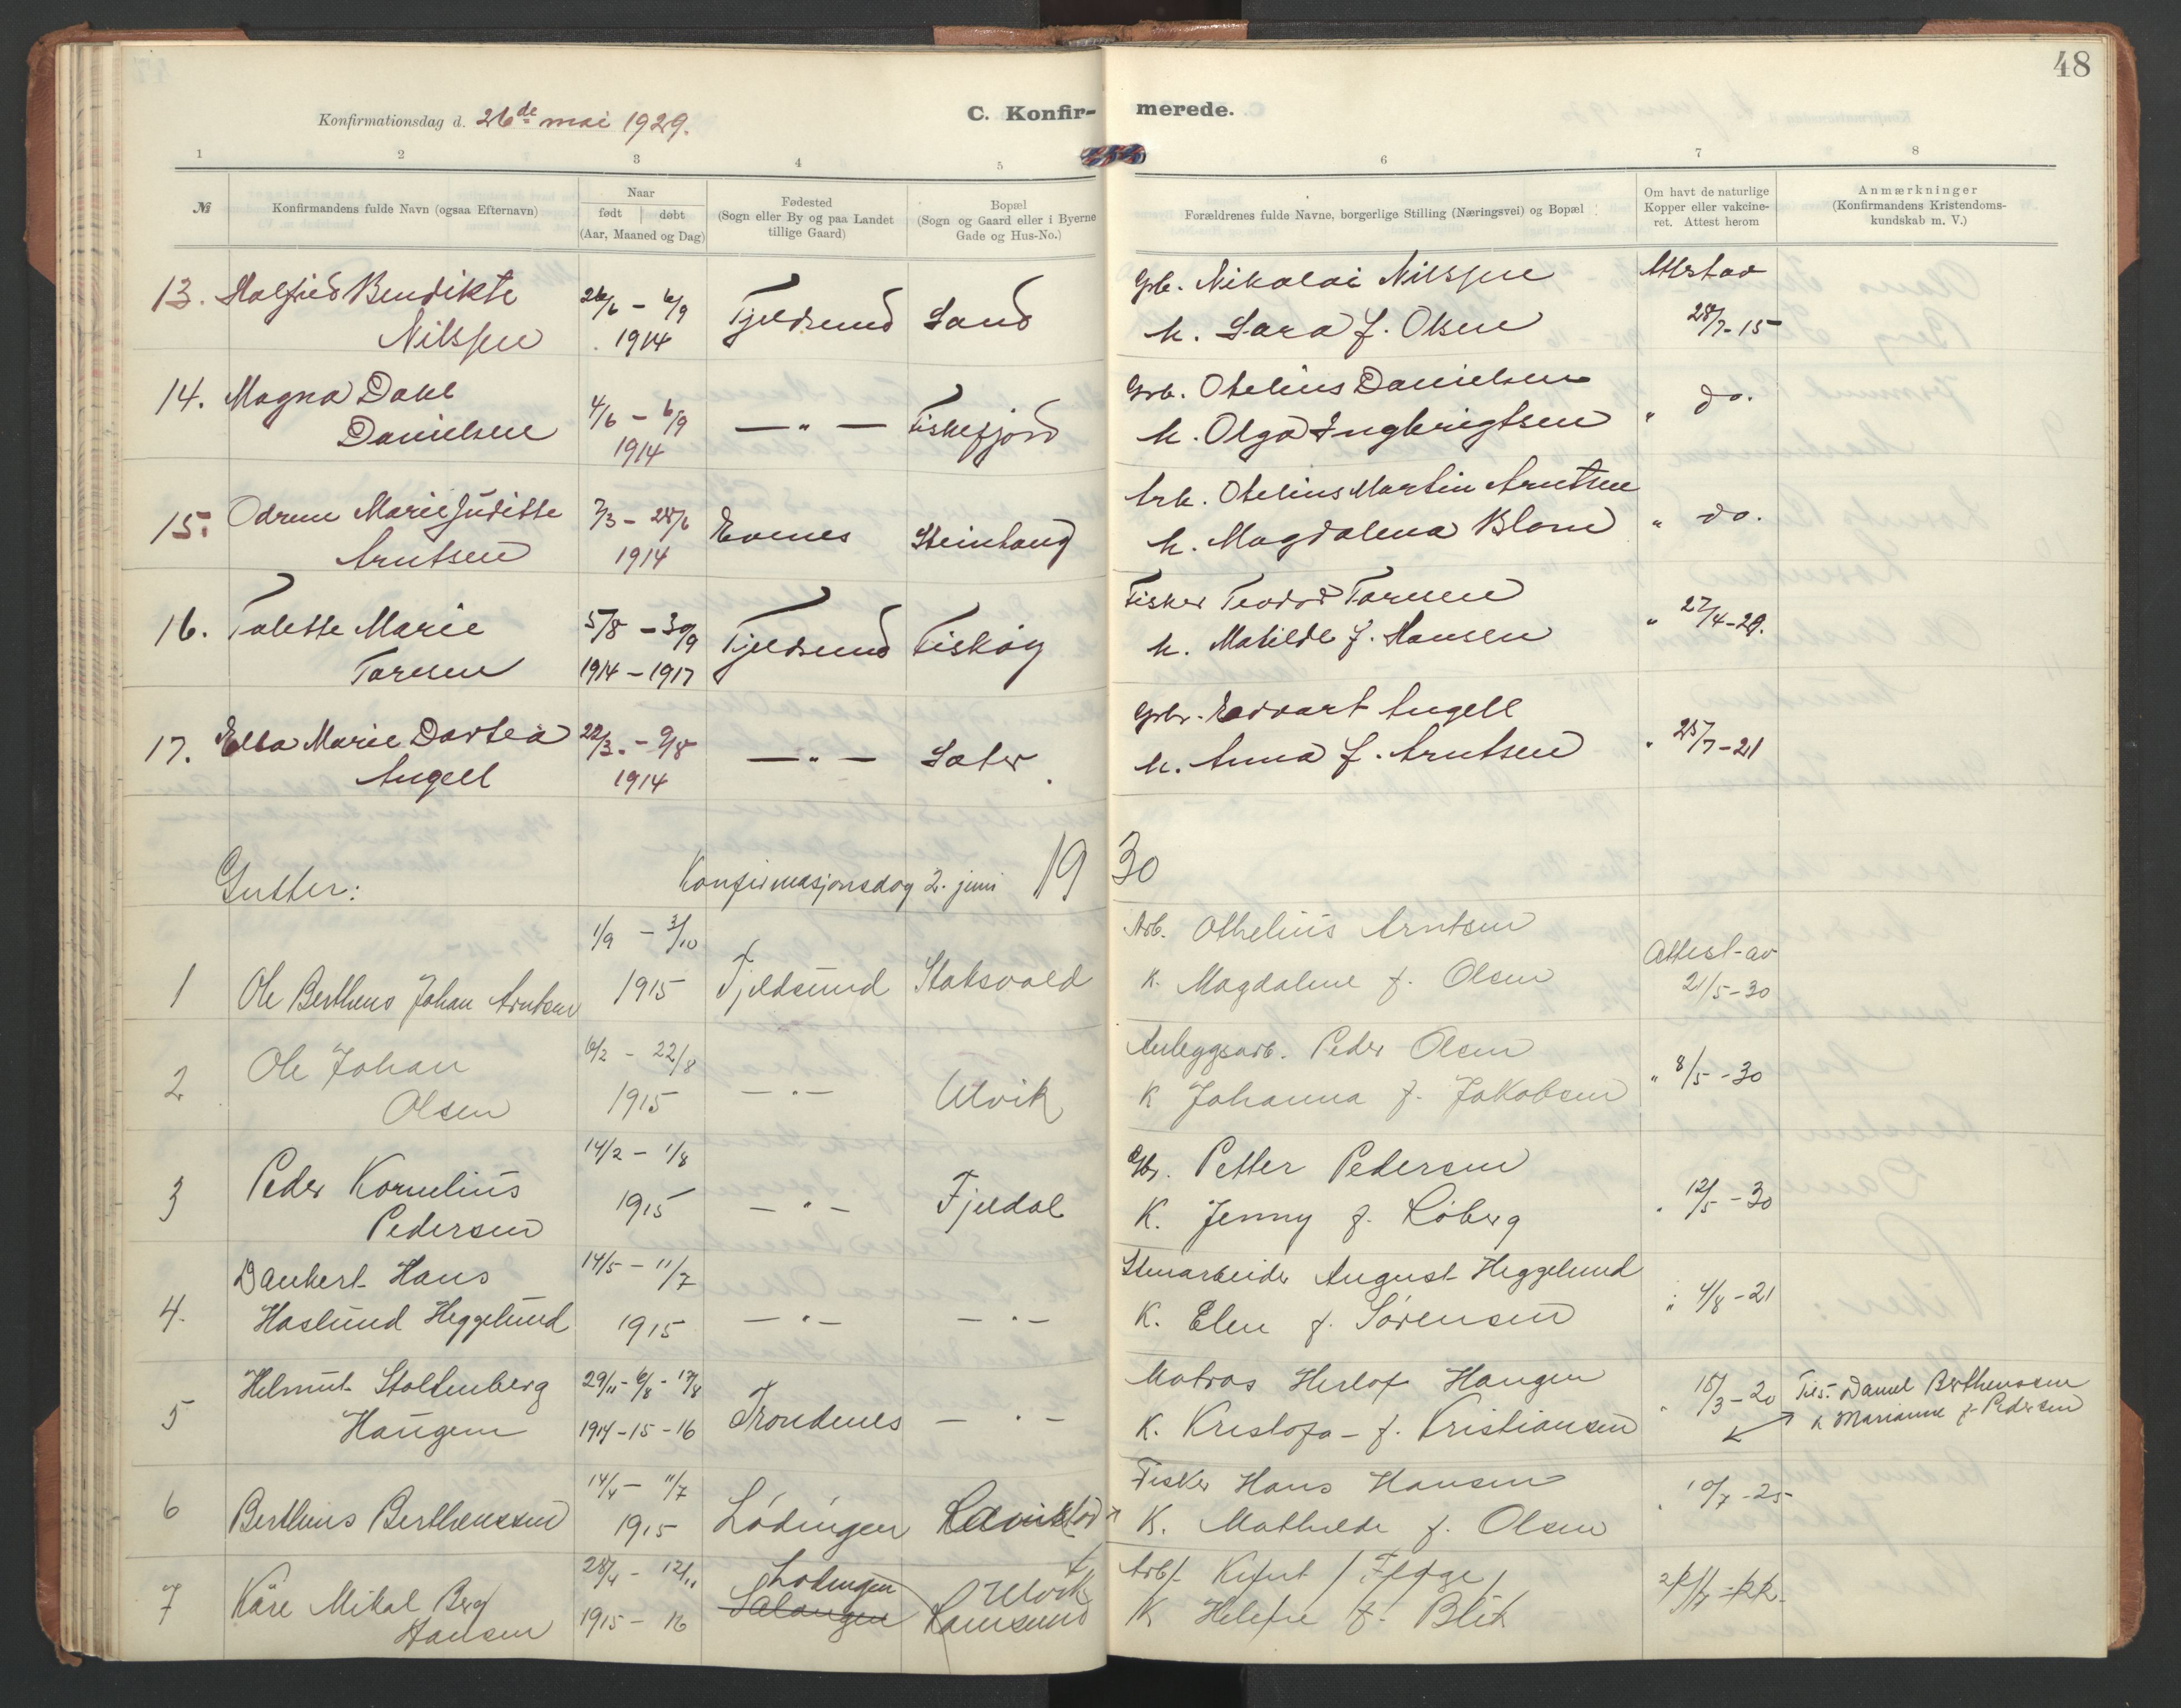 48
Konfirmationsdag d. 26de mai 1929.
C. Konfir-
merede.
1 2 3 4 5 6 7 8
№
Konfirmandens fulde Navn (ogsaa Efternavn)
Naar
født døbt
(Aar, Maaned og Dag)
Fødested
(Sogn eller By og paa Landet
tillige Gaard)
Bopæl
(Sogn og Gaard eller i Byerne
Gade og Hus-No.)
Forældrenes fulde Navne, borgerlige Stilling (Næringsvei) og Bopæl
Om havt de naturlige
Kopper eller vakcine-
ret. Attest herom
Anmærkninger
(Konfirmandens Kristendoms-
kundskab m. V.)
13. Halfrid Bendikte 26/6 - 6/9 Fjeldsund Sand Grb. Nikolai Nilssen Attest av
Nilssen 1914 k. Sara f. Olsen 28/7-15
14. Magna Dahl 4/6 - 6/9 — „ — Fiskefjord Grb. Otelius Danielsen „ do.
Danielsen 1914 k. Olga Ingbrigtsen
15. Marie Juditte 7/3 - 28/6 Evenes Steinhaug Arb. Otelius Martin Arntsen „ do.
Arntsen 1914 k. Magdalena Blom
16. Tolette Marie 5/8 - 30/9 Fjeldsund Fiskøy Fisker Teodor Toresen „ 27/4-29.
Toresen 1914 - 1917 k. Matilde f. Hansen
17. Ella Marie Dortea 22/3 - 9/8 — „ — Sater Grbr. Edvart Angell „ 25/7-21
Angell 1914 k. Anna f. Arntsen
Gutter: Konfirmasjonsdag 2. juni 1930
1/9 - 3/10 Arb. Othelius Arntsen Attest av
1 Ole Bertheus Johan Arntsen 1915 Fjeldsund Stoksvold K. Magdalene f. Olsen 21/5-30
2 Ole Johan 6/2 - 22/8 — „ — Utvik Anleggsarb. Peder Olsen „ 8/5-30
Olsen 1915 K Johanna f. Jakobsen
3 Peder Kornelius 14/2 - 1/8 — „ — Fjeldal Gbr. Petter Pedersen „ 12/5-30
Pedersen 1915 K. Jenny f. Løberg
4. Dankert Hans 14/5 - 11/7 — „ — — „ — Stenarbeider August Heggelund „ 4/8-21
Haslund Heggelund 1915 K. Elen f. Sørensen
5 Helmut Stoltenberg 29/11 - 6/8 - 17/8 Trondenes — „ — Matros Herlof Haugen „ 15/3-20 Daniel Berthenssen
Haugen 1914-15-16 K. Kristofa f. Kristiansen K Marianne f. Pedersen
6 Bertheus Berthenssen 14/4 - 11/7 Lødingen Fisker Hans Hansen „ 10/7-25
1915 K. Mathilde f. Olsen
7 Kåre Mikal Berg 28/4 - 12/11 Lødingen Utvik Arb.
Hansen 1915 - 16 Salangen Ramsund K f. Blix